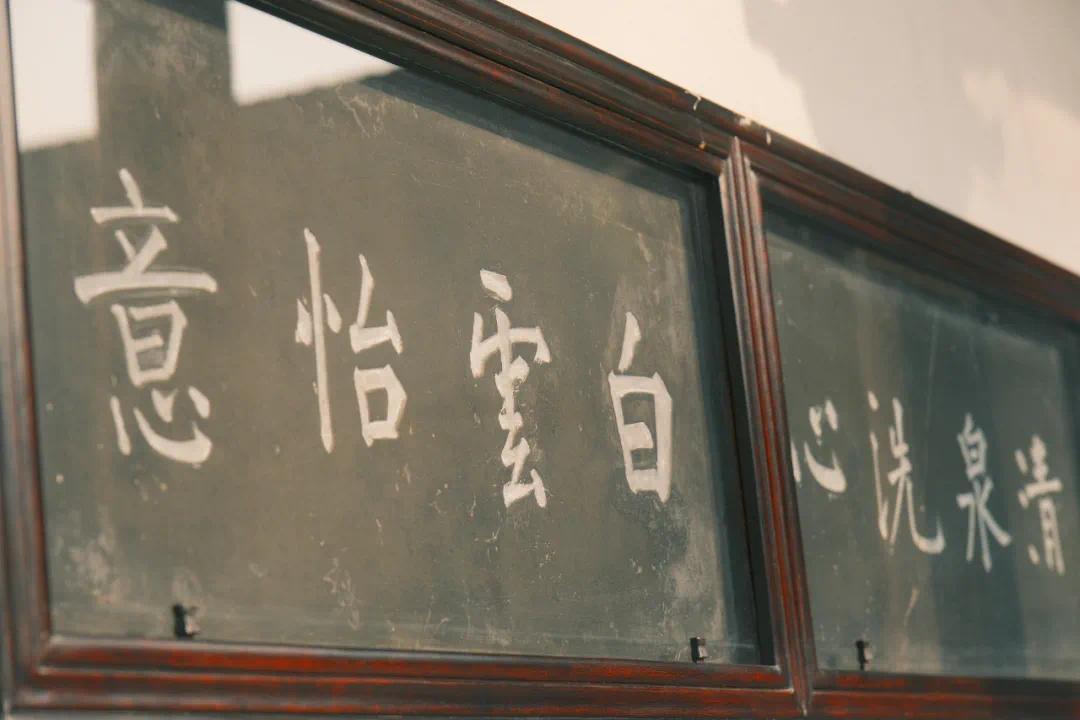 清泉洗心
白雲怡意